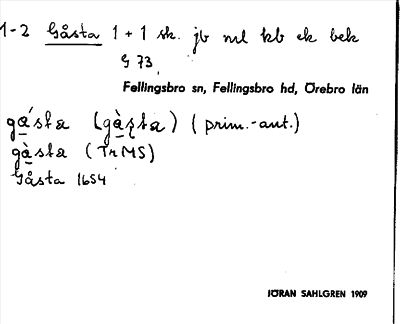 1-2 Gåsta 1 + 1 sk. jb ml kb ek bek
G 73
Fellingsbro sn, Fellingsbro hd, Örebro län
gá̱sta (gà̱ṣta) (prim.-ant.)
gà̱sta (TrMS)
Gåsta 1654
JÖRAN SAHLGREN 1909